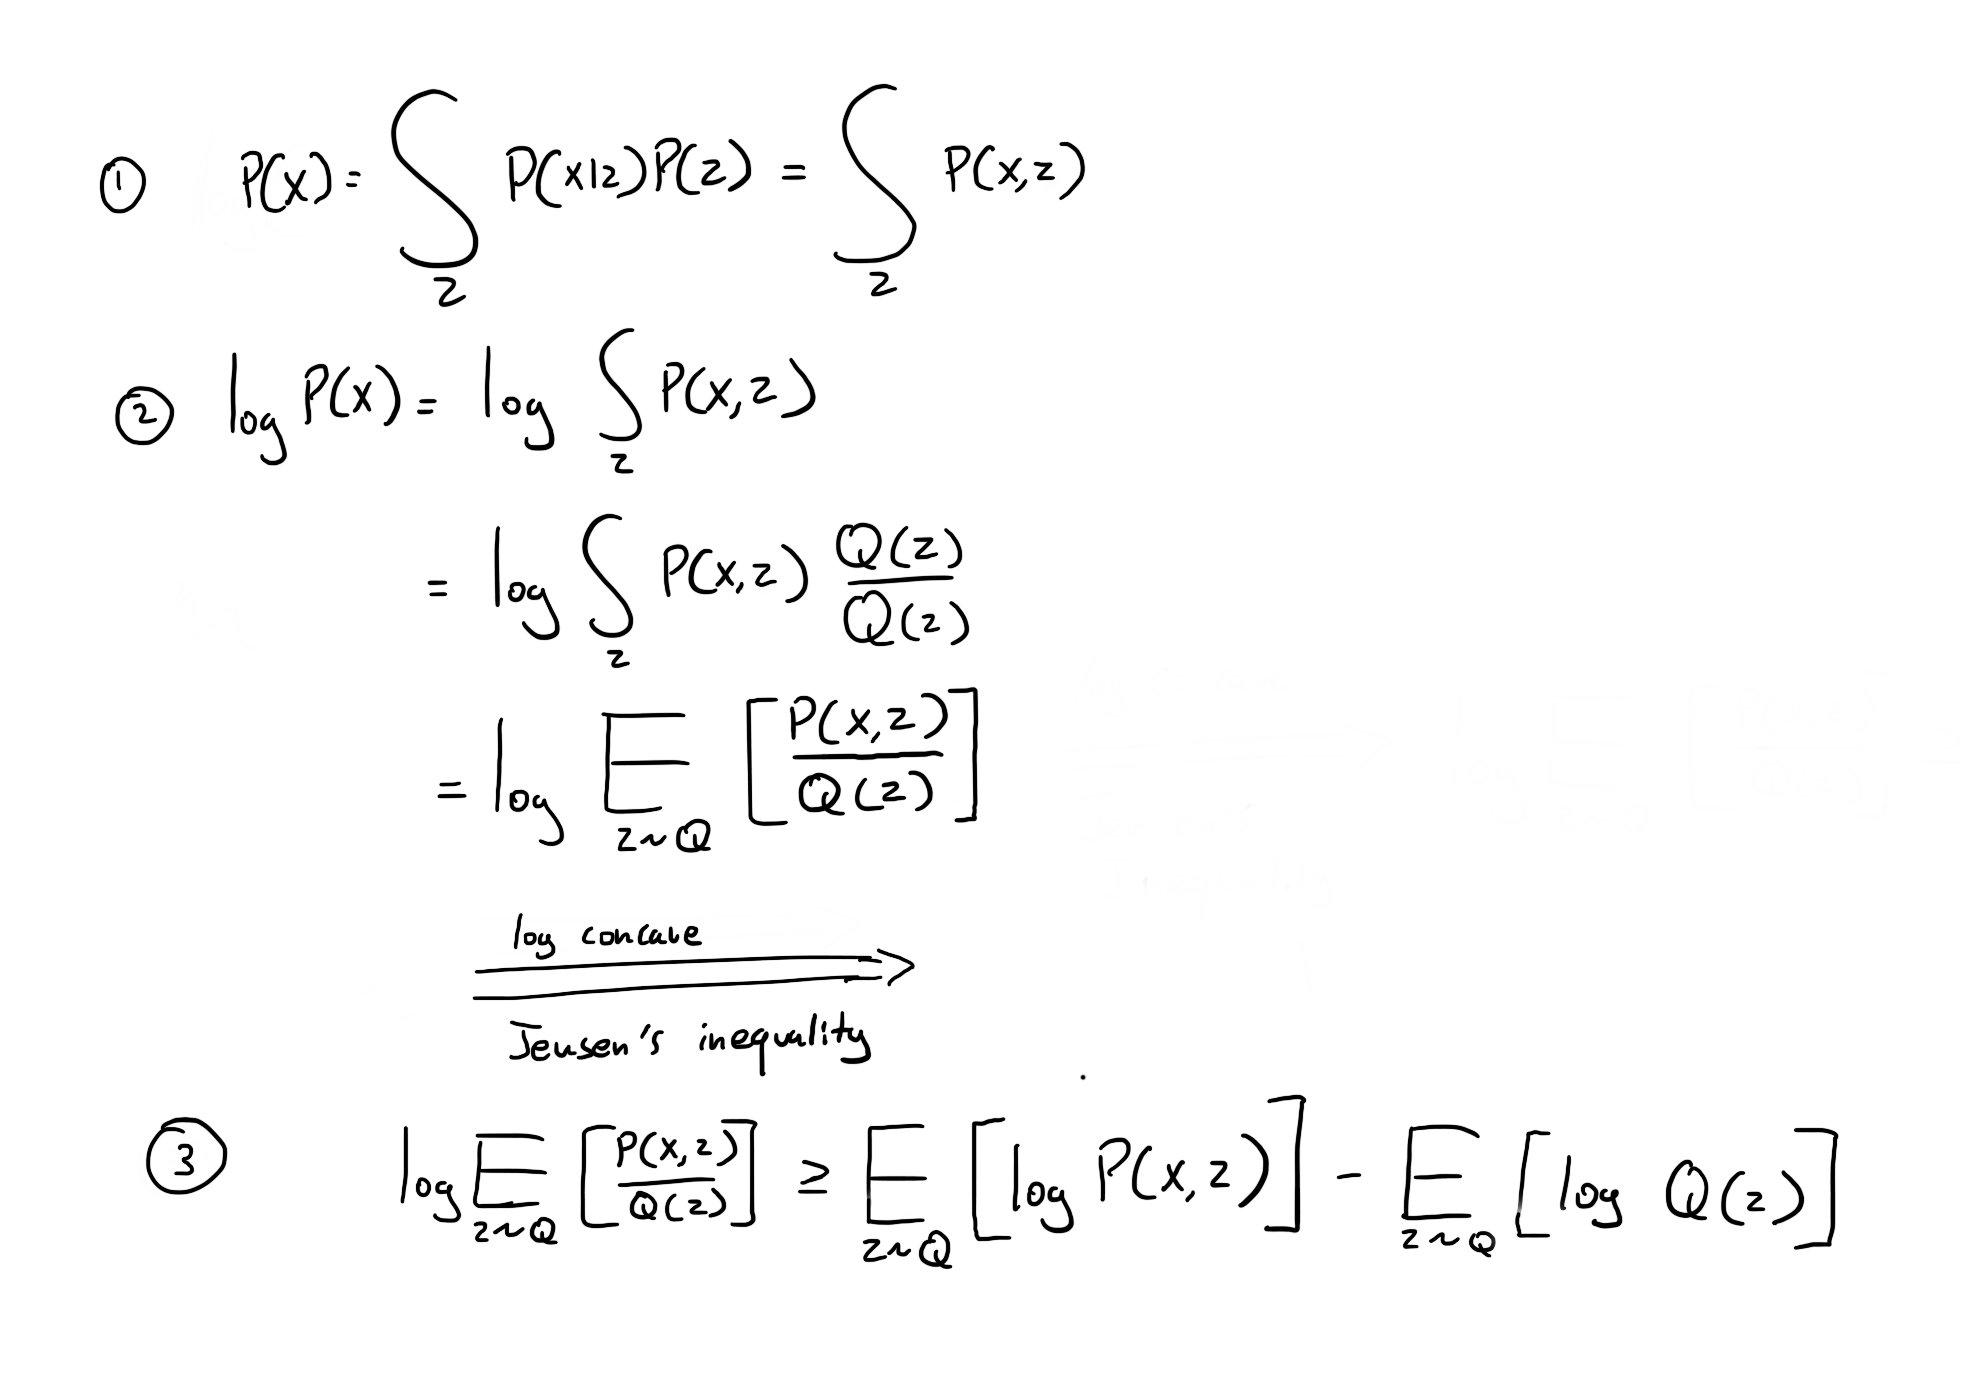 ① P(x) = ∫_z P(x|z)P(z) = ∫_z P(x,z)
② log P(x) = log ∫_z P(x,z)
= log ∫_z P(x,z) Q(z)/Q(z)
= log E_{z~Q} [P(x,z)/Q(z)]
log concave
Jensen's inequality
③ log E_{z~Q} [P(x,z)/Q(z)] ≥ E_{z~Q} [log P(x,z)] - E_{z~Q} [log Q(z)]